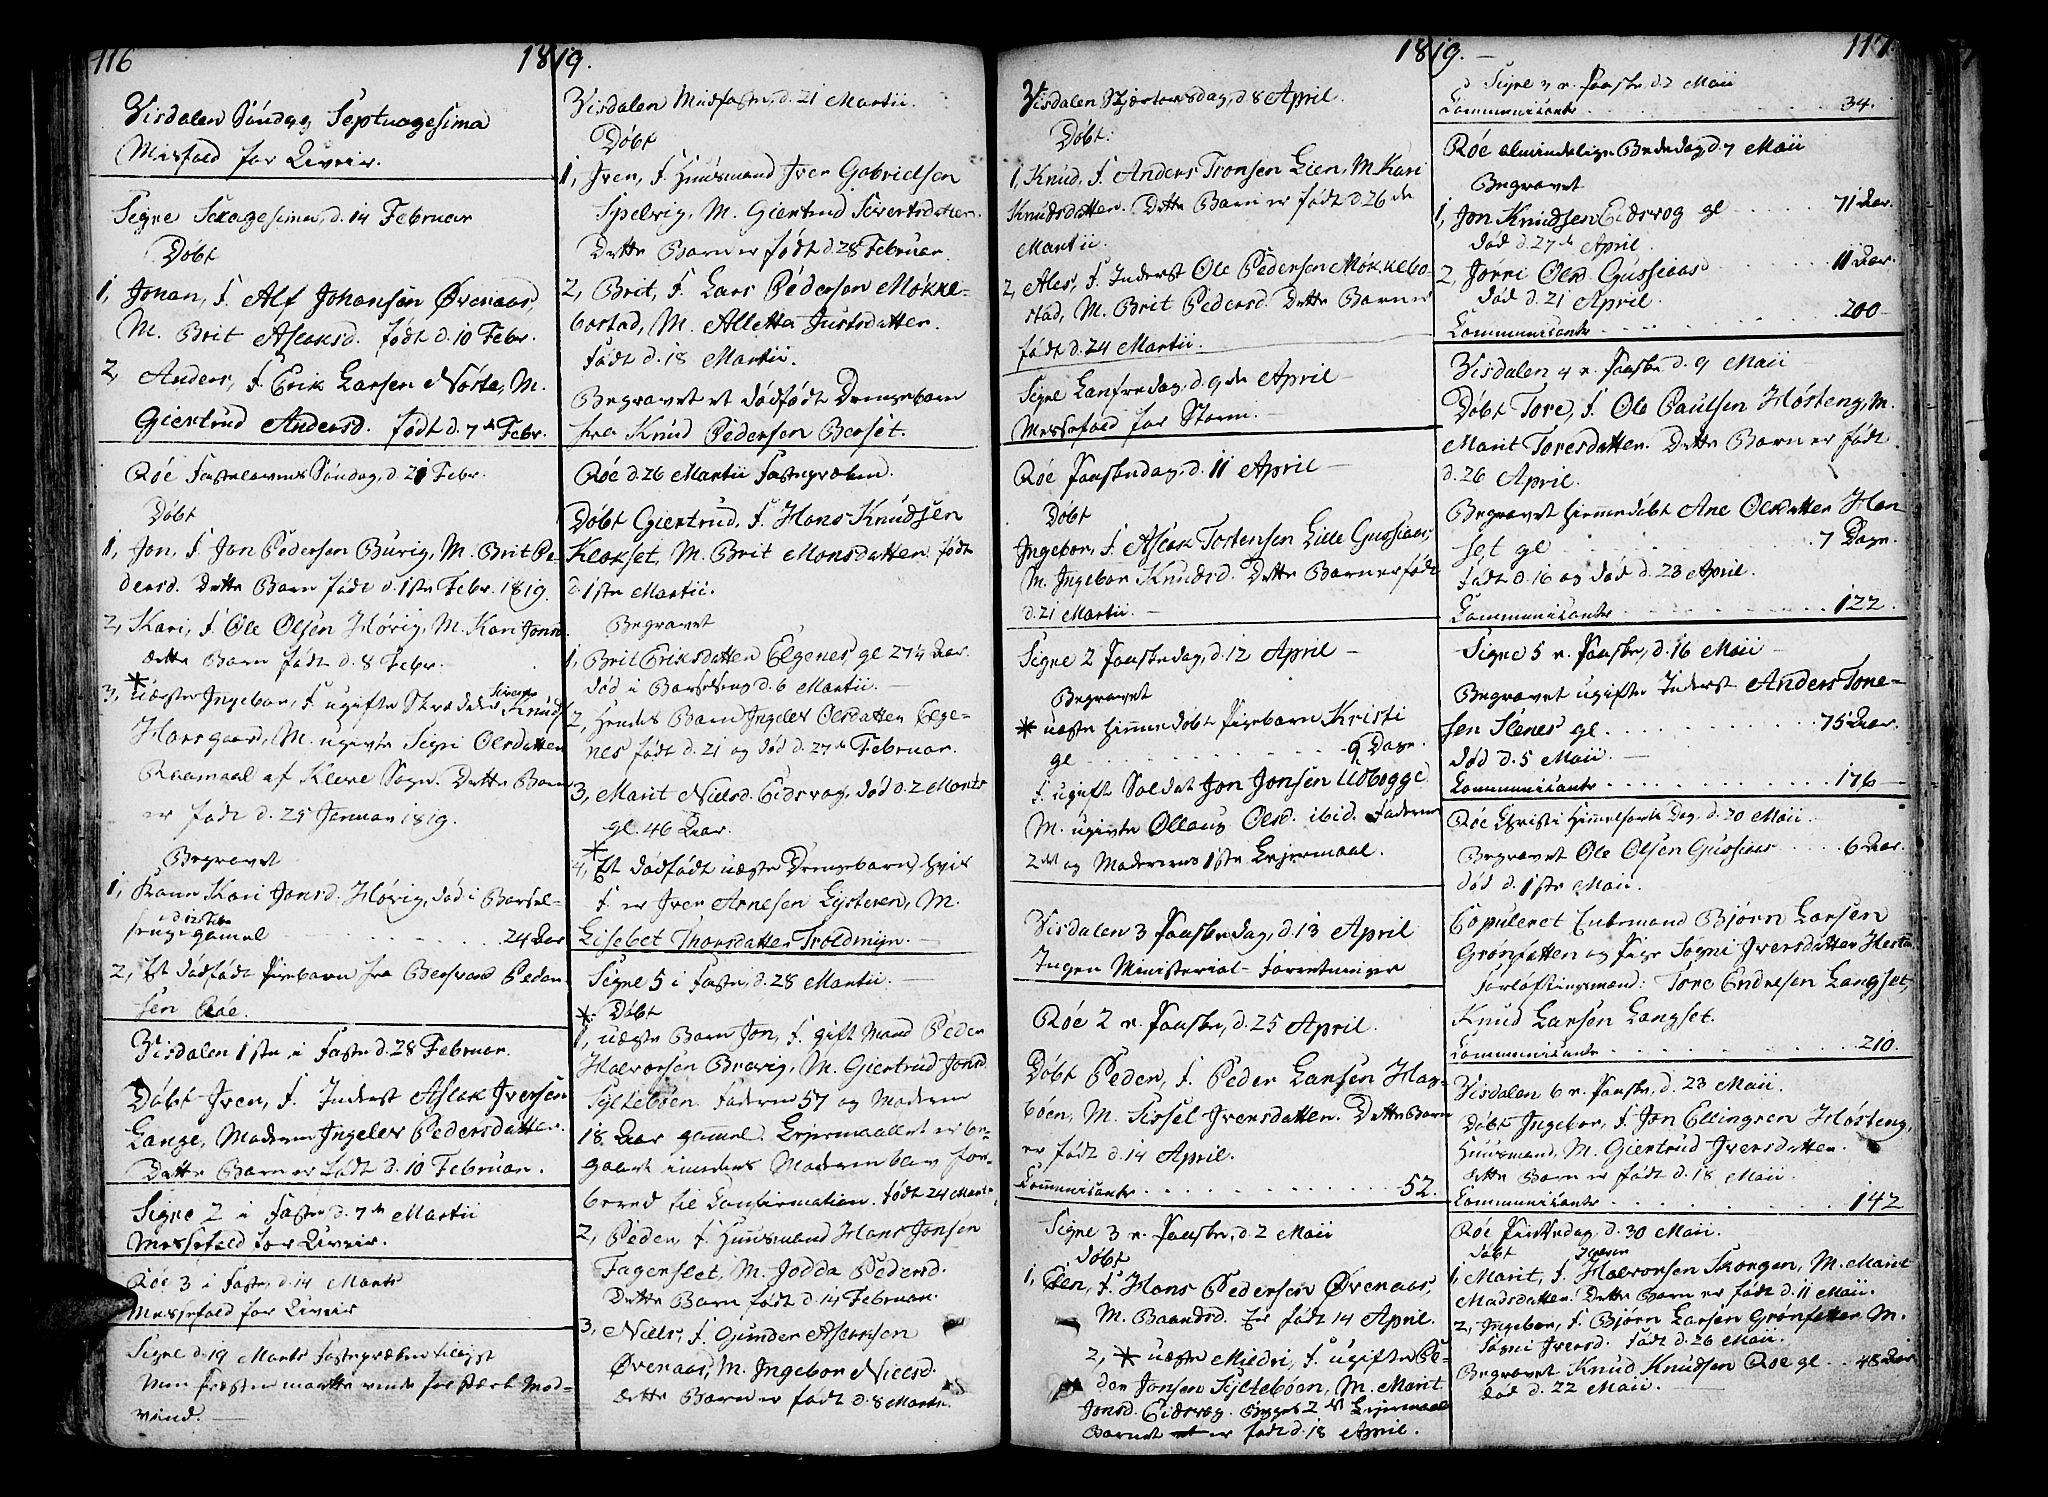 116
1819.
Visdalen Søndag Septuagesima
Misfald for Uveir.
Signe Sexagesima, d. 14 Februar
Døbt
1, Johan, F. Alf Johansen Øvenaas,
M. Brit Aslaksd. født d. 10 Febr.
2, Anders, F. Erik Larsen Nøste, M.
Giertrud Andersd. født d. 7de Febr.
Røe Fastelavens Søndag, d. 21 Febr.
Døbt
1, Jon, F. Jon Pedersen Burig, M. Brit Pe-
dersd. Dette Barn født d. 1ste Febr. 1819.
2, Kari, F. Ole Olsen Hørig, M. Kari Jonsd.
dette Barn født d. 8 Febr.
3, uægte Ingebor, F. ugifte Skrædder Knud
Horsgaard, M. ugivte Signi Olsdatter
Raamaal af Kleve Sogn. Dette Barn
er født d. 25 Januar 1819.
Begravet
1, Kone Kari Jonsd. Hørig, død i Barsel-
seng d. 12 Febr. gamel 24 Aar
2, Et dødfødt Pigebarn fra Bersvend Peder-
sen Røe.
Visdalen 1ste i Faste d. 28 Februar.
Døbt Iver, F. Inderst Aslak Iversen
Lange, Moderen Ingeler Pedersdatter.
Dette Barn er født d. 10 Februar.
Signe 2 i Faste d. 7de Martii
Messefald for Uveir.
Røe 3 i Faste, d. 14 Marts
Messefald for Uveir
Signe d. 19 Marts Fasteprækен tillagt
Men Præsten maatte vende for stærk Mod-
vind.
Visdalen Midfaste, d. 21 Martii.
Døbt
1, Iver, F. Huusmand Iver Gabrielsen
Spelvig, M. Giertrud Sivertsdatter.
Dette Barn er født d. 28 Februar.
2, Brit, F. Lars Pedersen Møkke-
bostad, M. Alletta Justsdatter.
født d. 18 Martii.
Begravet et dødfødt Drengebarn
fra Knud Pedersen Berset.
Røe d. 26 Martii Fasteprækен.
Døbt Giertrud, F. Hans Knudsen
Klokset, M. Brit Monsdatter. født
d. 1ste Martii.
Begravet
1, Brit Eriksdatter Elgenes gl 27¼ Aar.
død i Barselseng d. 6 Martii.
2, Hendes Barn Ingeler Olsdatter Elge-
nes født d. 21 og død d. 27de Februar.
3, Marit Nielsd. Eidsvog, død d. 2 Marts
gl. 46 Aar.
4, Et dødfødt uægte Drengebarn, hvis
F. er Iver Arnesen Lysteren, M.
Lisebet Thorsdatter Troldmyr.
Signe 5 i Faste, d. 28 Martii.
Døbt
1, uægte Barn Jon, F. gift Mand Peder
Halvorsen Bravig, M. Giertrud Jonsd.
Sylteboen. Faderen 57 og Moderen
18 Aar gammel. Leiermaallet er be-
gaaet inden Moderen blev for-
bered til Confirmation. født 24 Marts.
2, Peder, F. Huusmand Hans Jonsen
Fagerslet, M. Jodda Pedersd.
Dette Barn født d. 14 Februar.
3, Niels, F. Gunder Aslaksen
Øvenaas, M. Ingebor Nielsd.
dette Barn er født d. 8 Martii.
1819.
117.
Visdalen Skjærtorsdag, d. 8 April.
Døbt:
1, Knud, F. Anders Tronsen Lien, M. Kari
Knudsdatter. Dette Barn er født d. 26de
Martii.
2, Ales, F. Inderst Ole Pedersen Møkkebo-
stad, M. Brit Pedersd. Dette Barn er
født d. 24 Martii.
Signe Lanfredag, d. 9de April
Messefald for Storm.
Røe Paaskedag, d. 11 April
Døbt
Ingebor, F. Aslak Tostensen Lille Gussiaas,
M. Ingebor Knudsd. Dette Barn er født
d. 21 Martii.
Signe 2 Paaskedag, d. 12 April
Begravet
* uægte hiemmedøbt Pigebarn Kristi
gl . . . . . . . 9 Dage.
F. ugift Soldat Jon Jonsen Utbogge
M. ugivte Ollaug Olsd. ibid. Faderens
2det og Moderens 1ste Leiermaal.
Visdalen 3 Paaskedag, d. 13 April
Ingen Ministerial-Forretninger
Røe 2 e. Paaske, d. 25 April.
Døbt Peder, F. Peder Larsen Hag-
bøen, M. Sissel Iversdatter. Dette Barn
er født d. 14 April.
Communicante . . . . . . 52.
Signe 3 e. Paaske, d. 2 Maii
Døbt
1, Elen, F. Hans Pedersen Øvenaas,
M. Baardsd. Er født 14 April.
2, * uægte Mildri, F. ugifte Pe-
der Jonsen Sylteboen, M. Marit
Jonsd. Eidsvog. Begges 2det Leiermaal
Barnet er født d. 18 April.
d. Signe 3 e. Paaske d. 2 Maii
Communicante . . . . . . 34.
Røe almindelige Bededag d. 7 Maii
Begravet
1, Jon Knudsen Eidsvog gl . . . . 71 Aar.
død d. 27de April.
2, Jørri Olsd. Gussiaas 11 Aar.
død d. 21 April.
Communicante . . . . . . 200
Visdalen 4 e. Paaske d. 9 Maii
Døbt Tore, F. Ole Paulsen Høsteng, M.
Marit Toresdatter. Dette Barn er født
d. 26 April.
Begravet hiemmedøbt Ane Olsdatter Han-
set gl . . . . . . 7 Dage.
født d. 16 og død d. 23 April.
Communicante . . . . . . 122.
Signe 5 e. Paaske, d. 16 Maii
Begravet ugifte Inderst Anders Tore-
sen Stenes gl. . . . . . . 75 Aar.
død d. 5 Maii.
Communicante . . . . . . 176
Røe Christi Himmelfarts Dag d. 20 Maii.
Begravet Ole Olsen Gussiaas . . . . 6 Aar.
død d. 1ste Maii.
Copuleret Enkemand Bjørn Larsen
Grønfetten og Pige Sogni Iversdatter Hesta
Forløftingsmænd: Tore Endresen Langset,
Knud Larsen Langset.
Communicante . . . . . . 210.
Visdalen 6 e. Paaske, d. 23 Maii.
Døbt Ingebor, F. Jon Ellingsen Høsteng,
Huusmand, M. Giertrud Iversdatter.
dette Barn er født d. 18 Maii.
Communicante . . . . . . 142
Røe Pintsedag, d. 30 Maii.
Døbt
1, Marit, F. Halvorsen Skorgen, M. Marit
Madsdatter. Dette Barn er født d. 11 Maii.
2, Ingebor, F. Bjørn Larsen Grønfetten M.
Sogni Iversd. født d. 26 Maii.
Begravet Knud Knudsen Røe gl . . 48 Aar
død d. 22 Maii.